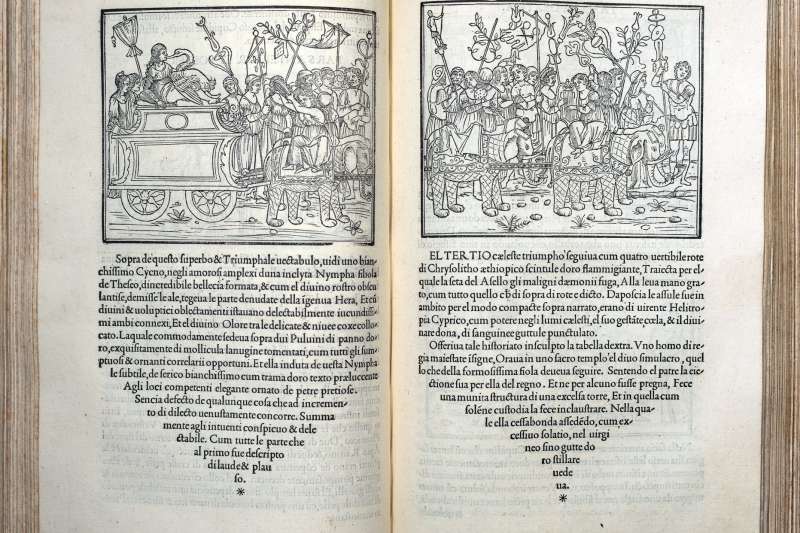 Sopra de questo superbo & Triumphale uectabulo, uidi uno bian-
chissimo Cycno, negli amorosi amplexi duna inclyta Nympha filiola
de Theseo, dincredibile bellecia formata, & cum el diuino rostro obscu
lantise, demisse le ale, tegeua le parte denudate della igenua Hera, Et cū
diuini & uoluptici oblectamenti istauano delectabilmente iucundissi-
mi ambi connexi, Et el diuino Olore tra le delicate & niuee coxe collo-
cato. Laquale commodamente sedeua sopra dui Puluini di panno do-
ro, exquisitamente di mollicula lanugine tomentati, cum tutti gli sum-
ptuosi & ornanti correlarii opportuni. Et ella induta de uesta Nympha
le subtile, de serico bianchissimo cum trama doro texto præluccente
Agli loci competenti elegante ornato de petre pretiose.
Sencia defecto de qualunque cosa che ad incremen-
to di dilecto uenustamente concorre. Summa
mente agli intuenti conspicuo & dele
ctabile. Cum tutte le parte che
al primo fue descripto
di laude & plau
so.
*
EL TERTIO cæleste triumpho seguiua cum quatro uertibile rote
di Chrysolitho æthiopico scintule doro flammigiante, Traiecta per el
quale la seta del Asello gli maligni dæmonii fuga, Alla leua mano gra-
to, cum tutto quello ch̄ di sopra di rote e dicto. Daposcia le assule sue in
ambito per el modo compacte sopra narrato, erano di uirente Helitro-
pia Cyprico, cum potere negli lumi cælesti, el suo gestáte cœla, & il diui-
nare dona, di sanguinee guttule punctulato.
Offeriua tale historiato insculpto la tabella dextra. Vno homo di re-
gia maiestate isigne, Oraua in uno sacro templo el diuo simulacro, quel
lo che della formosissima fiola deueua seguire. Sentendo el patre la eie-
ctione sua per ella del regno. Et ne per alcuno fusse pregna, Fece
una munita structura di una excelsa torre, Et in quella cum
soléne custodia la fece inclaustrare. Nella qua-
le ella cessabonda assedédo, cum ex-
cessiuo solatio, nel uirgi
neo sino gutte do
ro stillare
uede
ua.
*